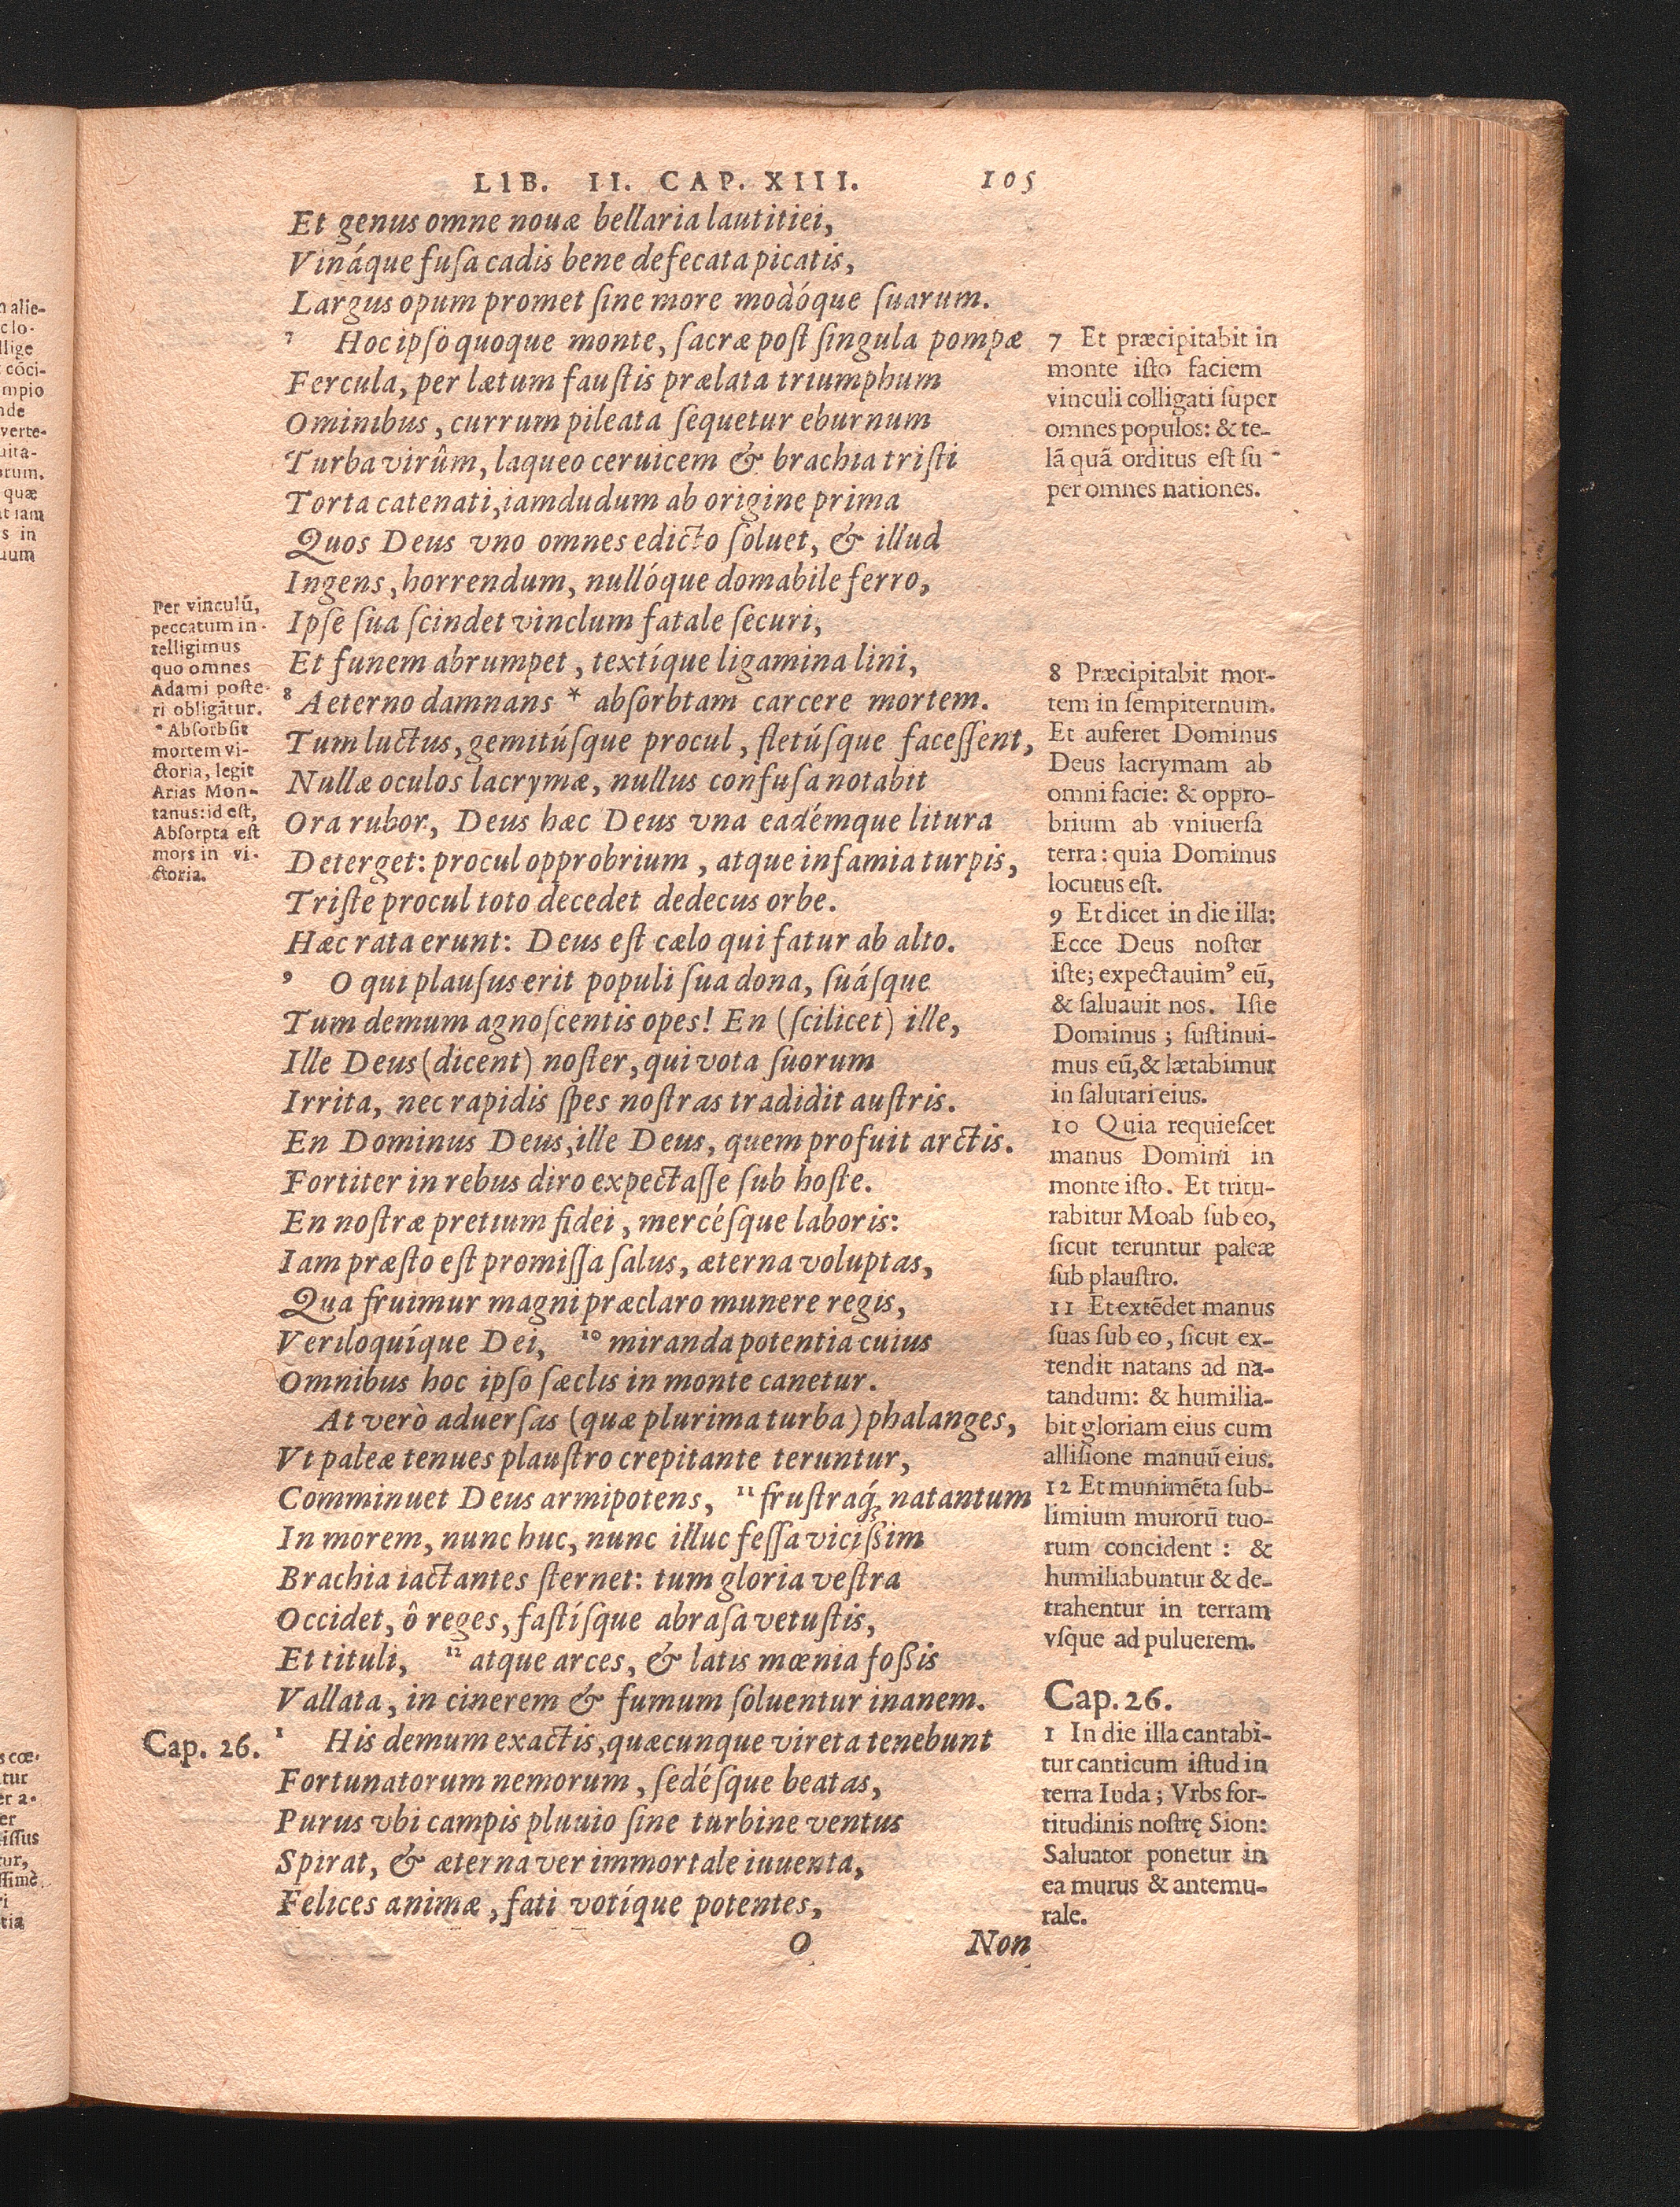 LIB. II. CAP. XIII. 105
Et genus omne nouæ bellaria lautitiei,
Vináque fuſa cadis bene defecata picatis,
Largus opum promet ſine more modóque ſuarum.
7 Hoc ipſo quoque monte, ſacræ poſt ſingula pompæ
Fercula, per lætum fauſtis prælata triumphum
Ominibus, currum pileata ſequetur eburnum
Turba virûm, laqueo ceruicem & brachia triſti
Torta catenati, iamdudum ab origine prima
Quos Deus vno omnes edicto ſoluet, & illud
Ingens, horrendum, nullóque domabile ferro,
Ipſe ſua ſcindet vinclum fatale ſecuri,
Et funem abrumpet, textíque ligamina lini,
8 Aeterno damnans * abſorbtam carcere mortem.
Tum luctus, gemitúſque procul, fletúſque faceſſent,
Nullæ oculos lacrymæ, nullus confuſa notabit
Ora rubor, Deus hæc Deus vna eadémque litura
Deterget: procul opprobrium, atque infamia turpis,
Triſte procul toto decedet dedecus orbe.
Hæc rata erunt: Deus eſt cælo qui fatur ab alto.
9 O qui plauſus erit populi ſua dona, ſuáſque
Tum demum agnoſcentis opes! En (ſcilicet) ille,
Ille Deus (dicent) noſter, qui vota ſuorum
Irrita, nec rapidis ſpes noſtras tradidit auſtris.
En Dominus Deus, ille Deus, quem profuit arctis.
Fortiter in rebus diro expectaſſe ſub hoſte.
En noſtræ pretium fidei, mercéſque laboris:
Iam præſto eſt promiſſa ſalus, æterna voluptas,
Qua fruimur magni præclaro munere regis,
Veriloquíque Dei, 10 miranda potentia cuius
Omnibus hoc ipſo ſæclis in monte canetur.
At verò aduerſas (quæ plurima turba) phalanges,
Vt paleæ tenues plauſtro crepitante teruntur,
Comminuet Deus armipotens, 11 fruſtraq́; natantum
In morem, nunc huc, nunc illuc feſſa viciſſim
Brachia iactantes ſternet: tum gloria veſtra
Occidet, ô reges, faſtíſque abraſa vetuſtis,
Et tituli, 12 atque arces, & latis mœnia foſſis
Vallata, in cinerem & fumum ſoluentur inanem.
1 His demum exactis, quæcunque vireta tenebunt
Fortunatorum nemorum, ſedéſque beatas,
Purus vbi campis pluuio ſine turbine ventus
Spirat, & æterna ver immortale iuuenta,
Felices animæ, fati votíque potentes,
O Non
Per vinculũ,
peccatum in-
telligimus
quo omnes
Adami poſte-
ri obligãtur.
* Abſorbſit
mortem vi-
ctoria, legit
Arias Mon-
tanus: id eſt,
Abſorpta eſt
mors in vi-
ctoria.
Cap. 26.
7 Et præcipitabit in
monte iſto faciem
vinculi colligati ſuper
omnes populos: & te-
lã quã orditus eſt ſu-
per omnes nationes.
8 Præcipitabit mor-
tem in ſempiternum.
Et auferet Dominus
Deus lacrymam ab
omni facie: & oppro-
brium ab vniuerſa
terra: quia Dominus
locutus eſt.
9 Et dicet in die illa:
Ecce Deus noſter
iſte; expectauimꝰ eũ,
& ſaluauit nos. Iſte
Dominus; ſuſtinui-
mus eũ, & lætabimur
in ſalutari eius.
10 Quia requieſcet
manus Domini in
monte iſto. Et tritu-
rabitur Moab ſub eo,
ſicut teruntur paleæ
ſub plauſtro.
11 Et extẽdet manus
ſuas ſub eo, ſicut ex-
tendit natans ad na-
tandum: & humilia-
bit gloriam eius cum
alliſione manuũ eius.
12 Et munimẽta ſub-
limium murorũ tuo-
rum concident: &
humiliabuntur & de-
trahentur in terram
vſque ad puluerem.
Cap. 26.
1 In die illa cantabi-
tur canticum iſtud in
terra Iuda; Vrbs for-
titudinis noſtrę Sion:
Saluator ponetur in
ea murus & antemu-
rale.